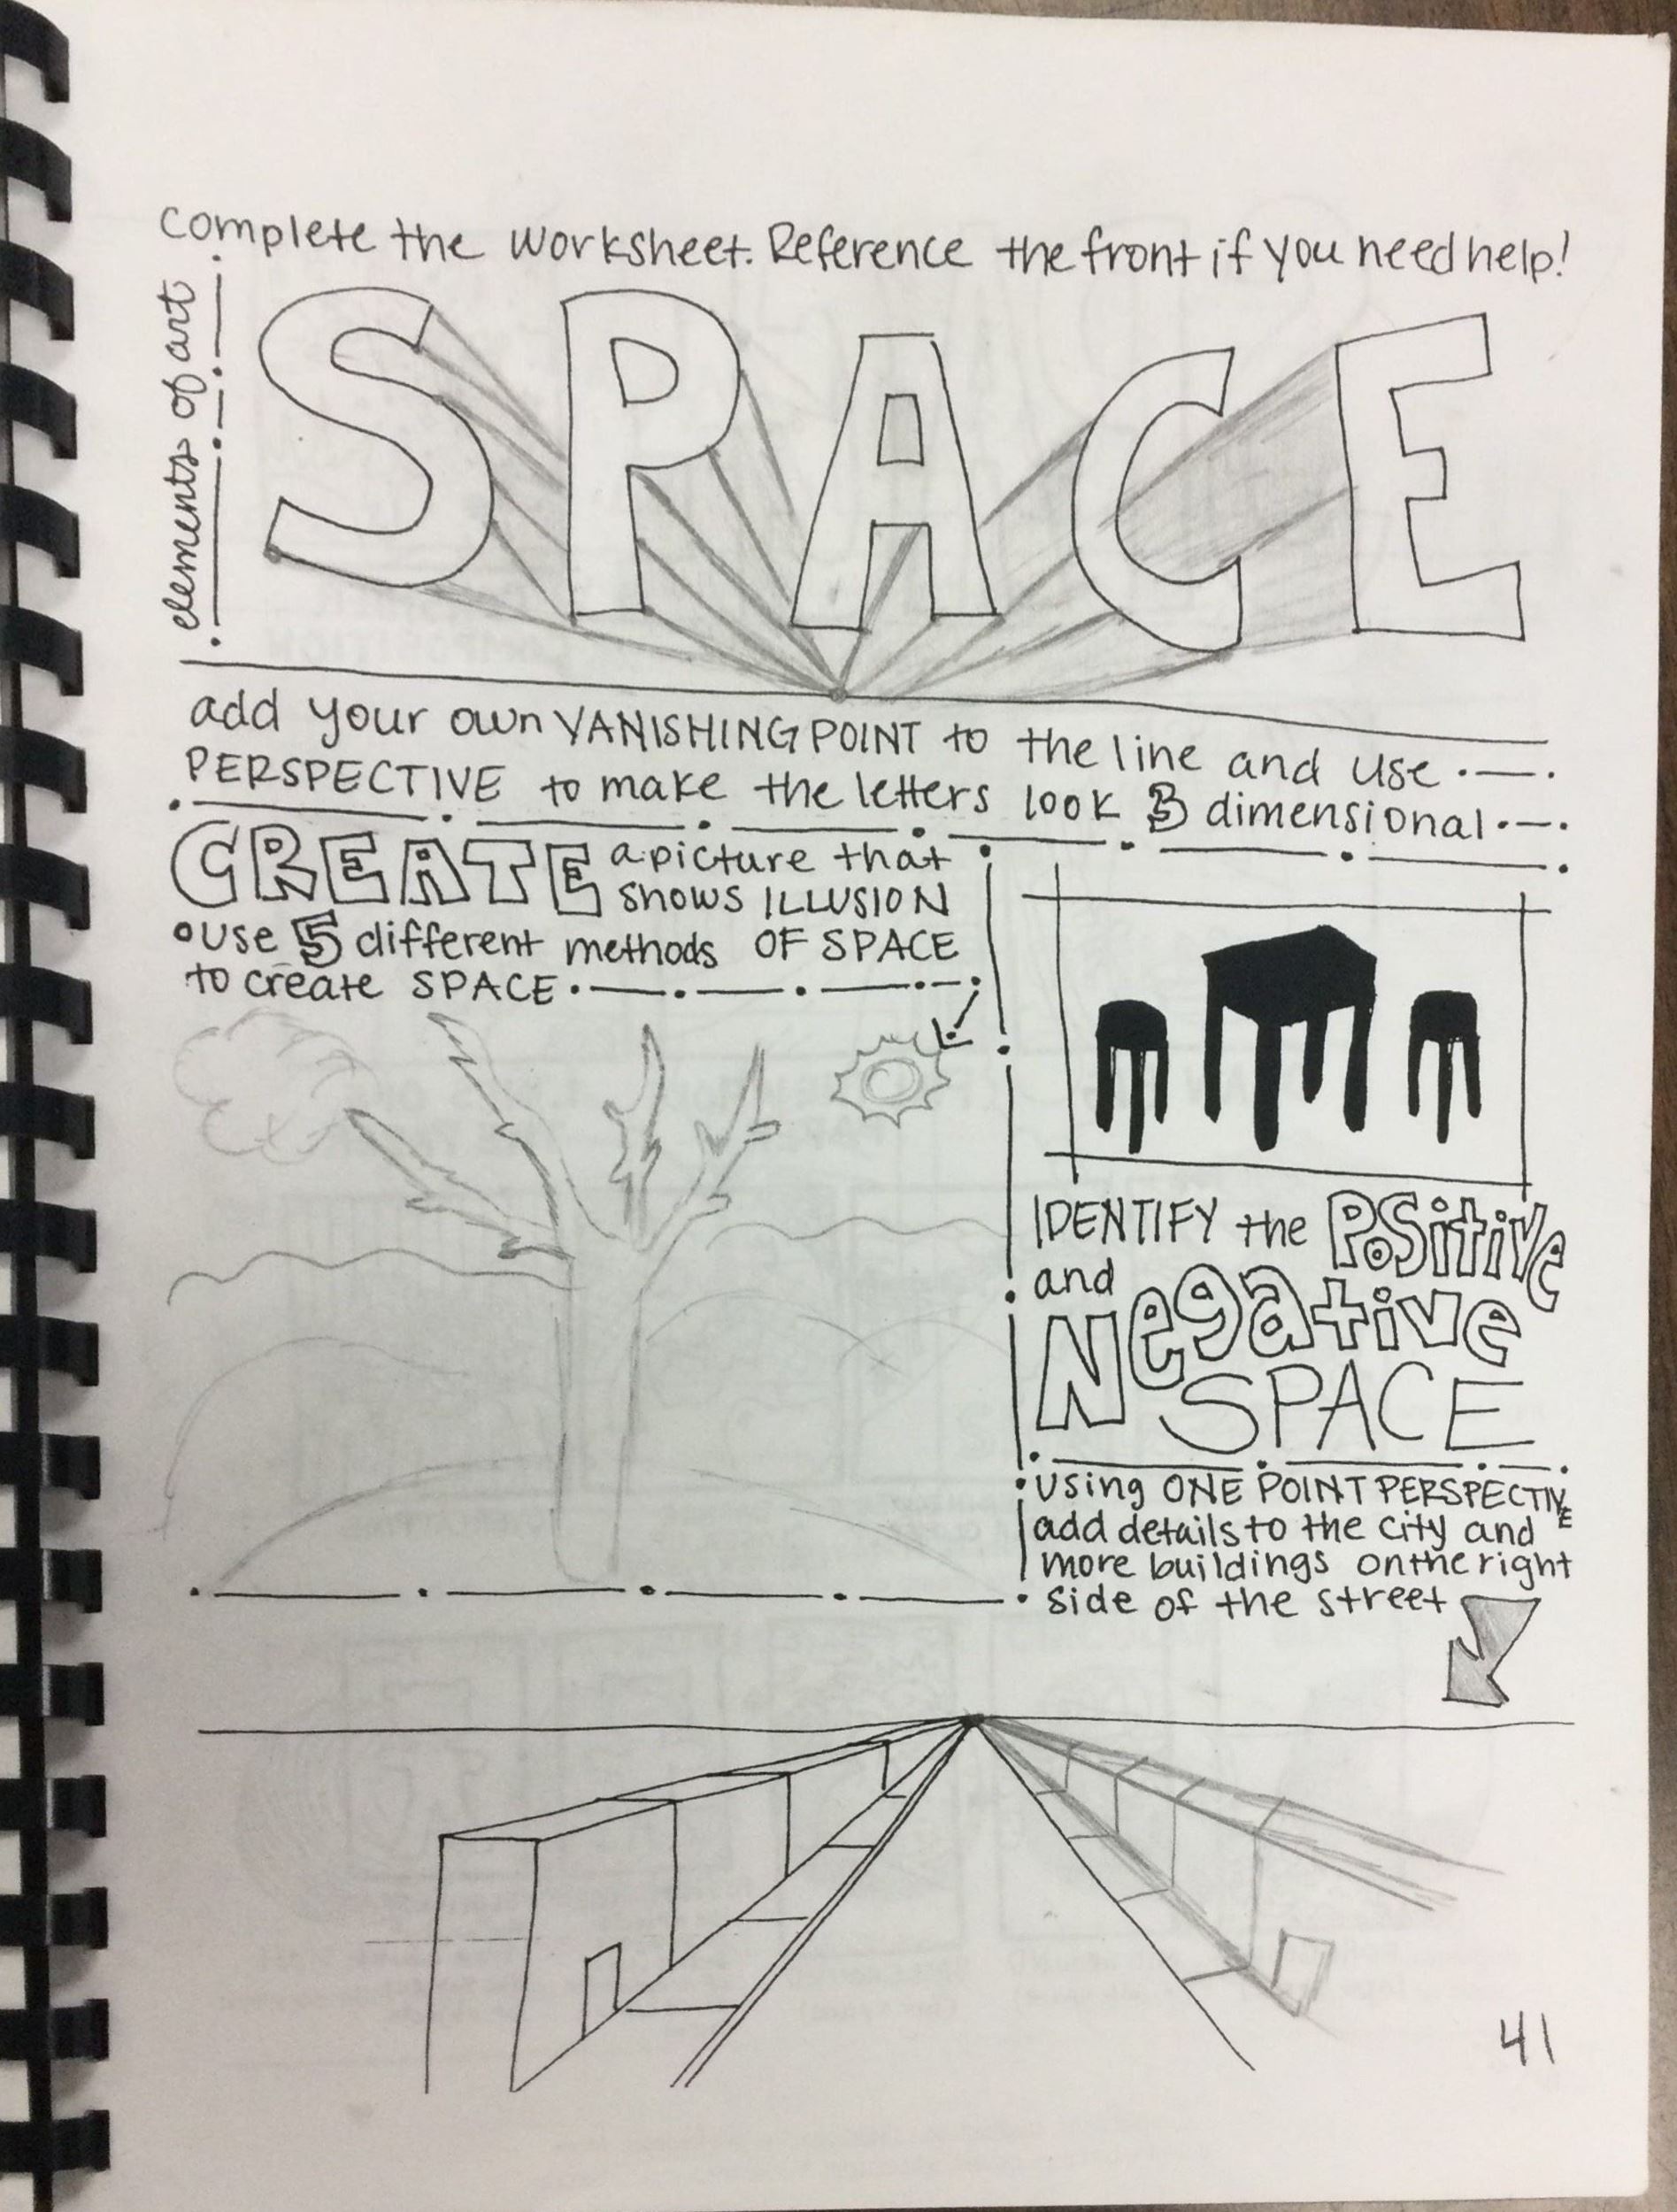 complete the worksheet. Reference the front if you need help!
elements of art
SPACE
add your own VANISHING POINT to the line and use
PERSPECTIVE to make the letters look 3 dimensional
CREATE a picture that
shows ILLUSION
use 5 different methods OF SPACE
to create SPACE
IDENTIFY the Positive
and
Negative
SPACE
using ONE POINT PERSPECTIVE
add details to the city and
more buildings on the right
side of the street
41